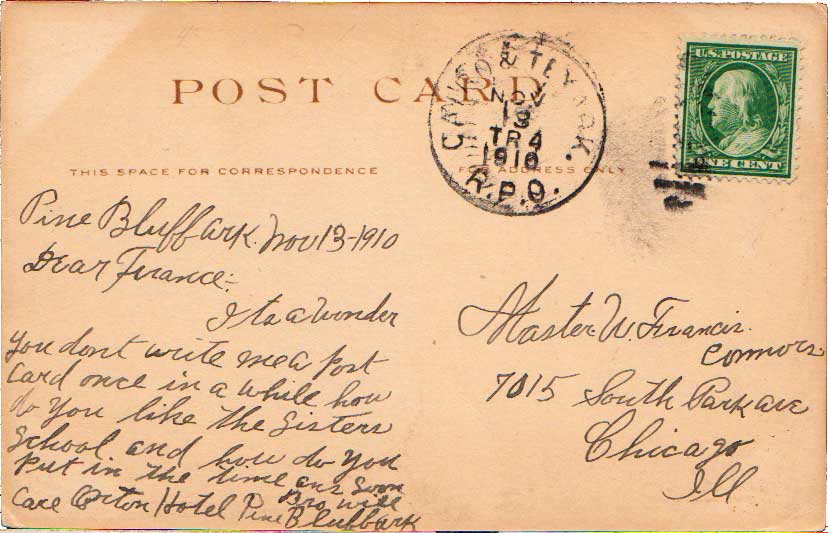 POST CARD
THIS SPACE FOR CORRESPONDENCE
FOR ADDRESS ONLY
NOV
13
TR 4
1910
R.P.O.
U.S. POSTAGE
ONE CENT
Pine Bluff Ark. Nov 13-1910
Dear Firance:-
Its a Wonder
You dont write me a Post
Card once in a while how
do You like the Sisters
School and how do You
Put in the time ans Soon
Bro Will
Care Orton Hotel Pine Bluff Ark
Master. W. Francis.
Connors
7015 South Park ave
Chicago
Ill